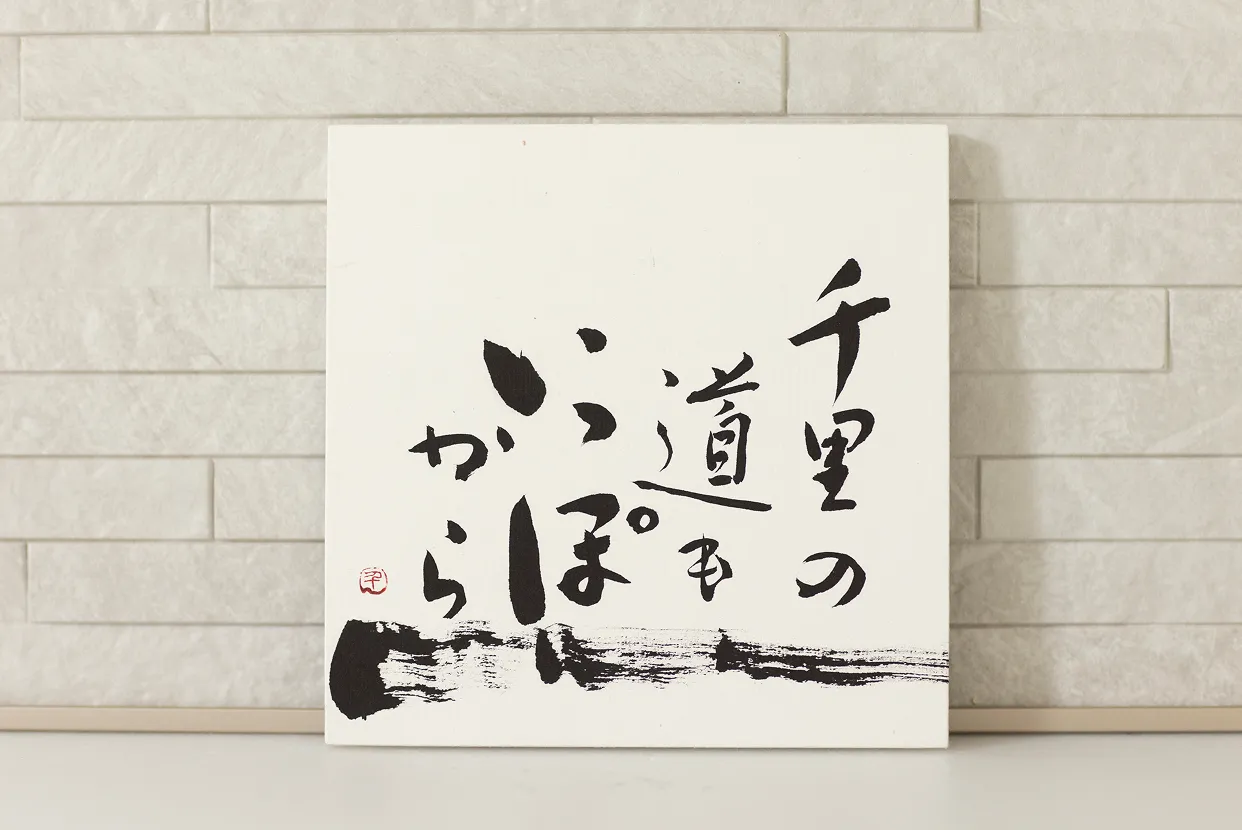 千里の
道も
いっぽ
から